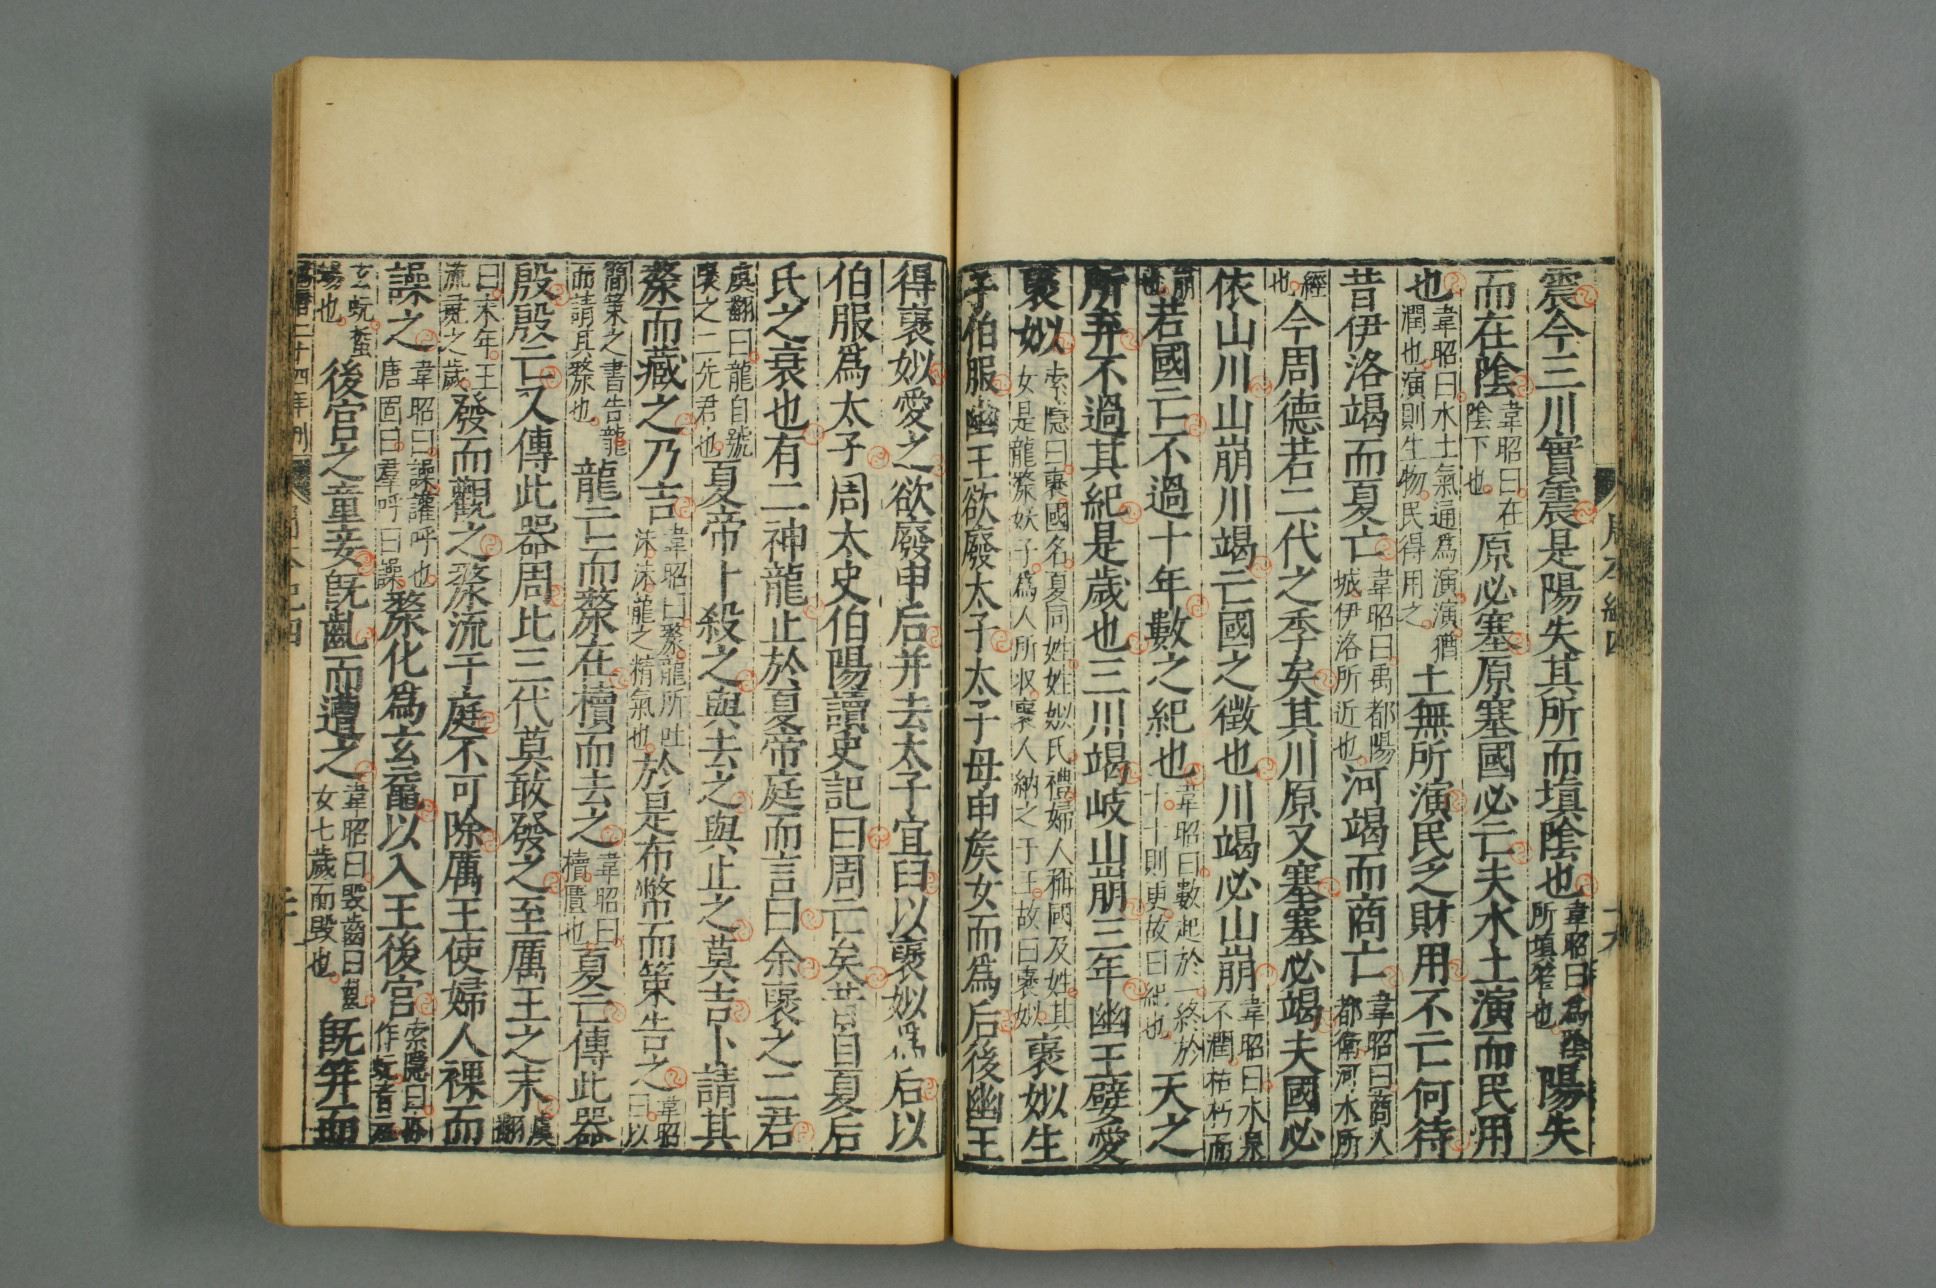 震今三川實震是陽失其所而塡陰也韋昭曰爲陰所塡笮也陽失
而在陰韋昭曰在陰下也原必塞原塞國必亡夫水土演而民用
也韋昭曰水土氣通爲演演猶潤也演則生物民得用之土無所演民乏財用不亡何待
昔伊洛竭而夏亡韋昭曰禹都陽城伊洛所近也河竭而商亡韋昭曰商人都衞河水所
經也今周德若二代之季矣其川原又塞塞必竭夫國必
依山川山崩川竭亡國之徵也川竭必山崩韋昭曰水泉不潤枯朽而
崩也若國亡不過十年數之紀也韋昭曰數起於一終於十十則更故曰紀也天之
所弃不過其紀是歲也三川竭岐山崩三年幽王嬖愛
襃姒索隱曰襃國名夏同姓姓姒氏禮婦人稱國及姓其女是龍漦妖子爲人所收襃人納之于王故曰襃姒襃姒生
子伯服幽王欲廢太子太子母申矦女而爲后後幽王
得襃姒愛之欲廢申后并去太子宜臼以襃姒爲后以
伯服爲太子周太史伯陽讀史記曰周亡矣昔自夏后
氏之衰也有二神龍止於夏帝庭而言曰余襃之二君
虞翻曰龍自號襃之二先君也夏帝卜殺之與去之與止之莫吉卜請其
漦而藏之乃吉韋昭曰漦龍所吐沫沫龍之精氣也於是布幣而策告之韋昭曰以
簡策之書告龍而請其漦也龍亡而漦在櫝而去之韋昭曰櫝匱也夏亡傳此器
殷殷亡又傳此器周比三代莫敢發之至厲王之末虞翻
曰末年王流彘之歲發而觀之漦流于庭不可除厲王使婦人裸而
譟之韋昭曰譟讙呼也唐固曰羣呼曰譟漦化爲玄黿以入王後宮索隱曰亦作蚖音元
玄蚖蜇蜴也後宮之童妾旣齓而遭之韋昭曰毀齒曰齓女七歲而毀也旣筓而
周本紀四
十六
萬曆二十四年刊
周本紀四